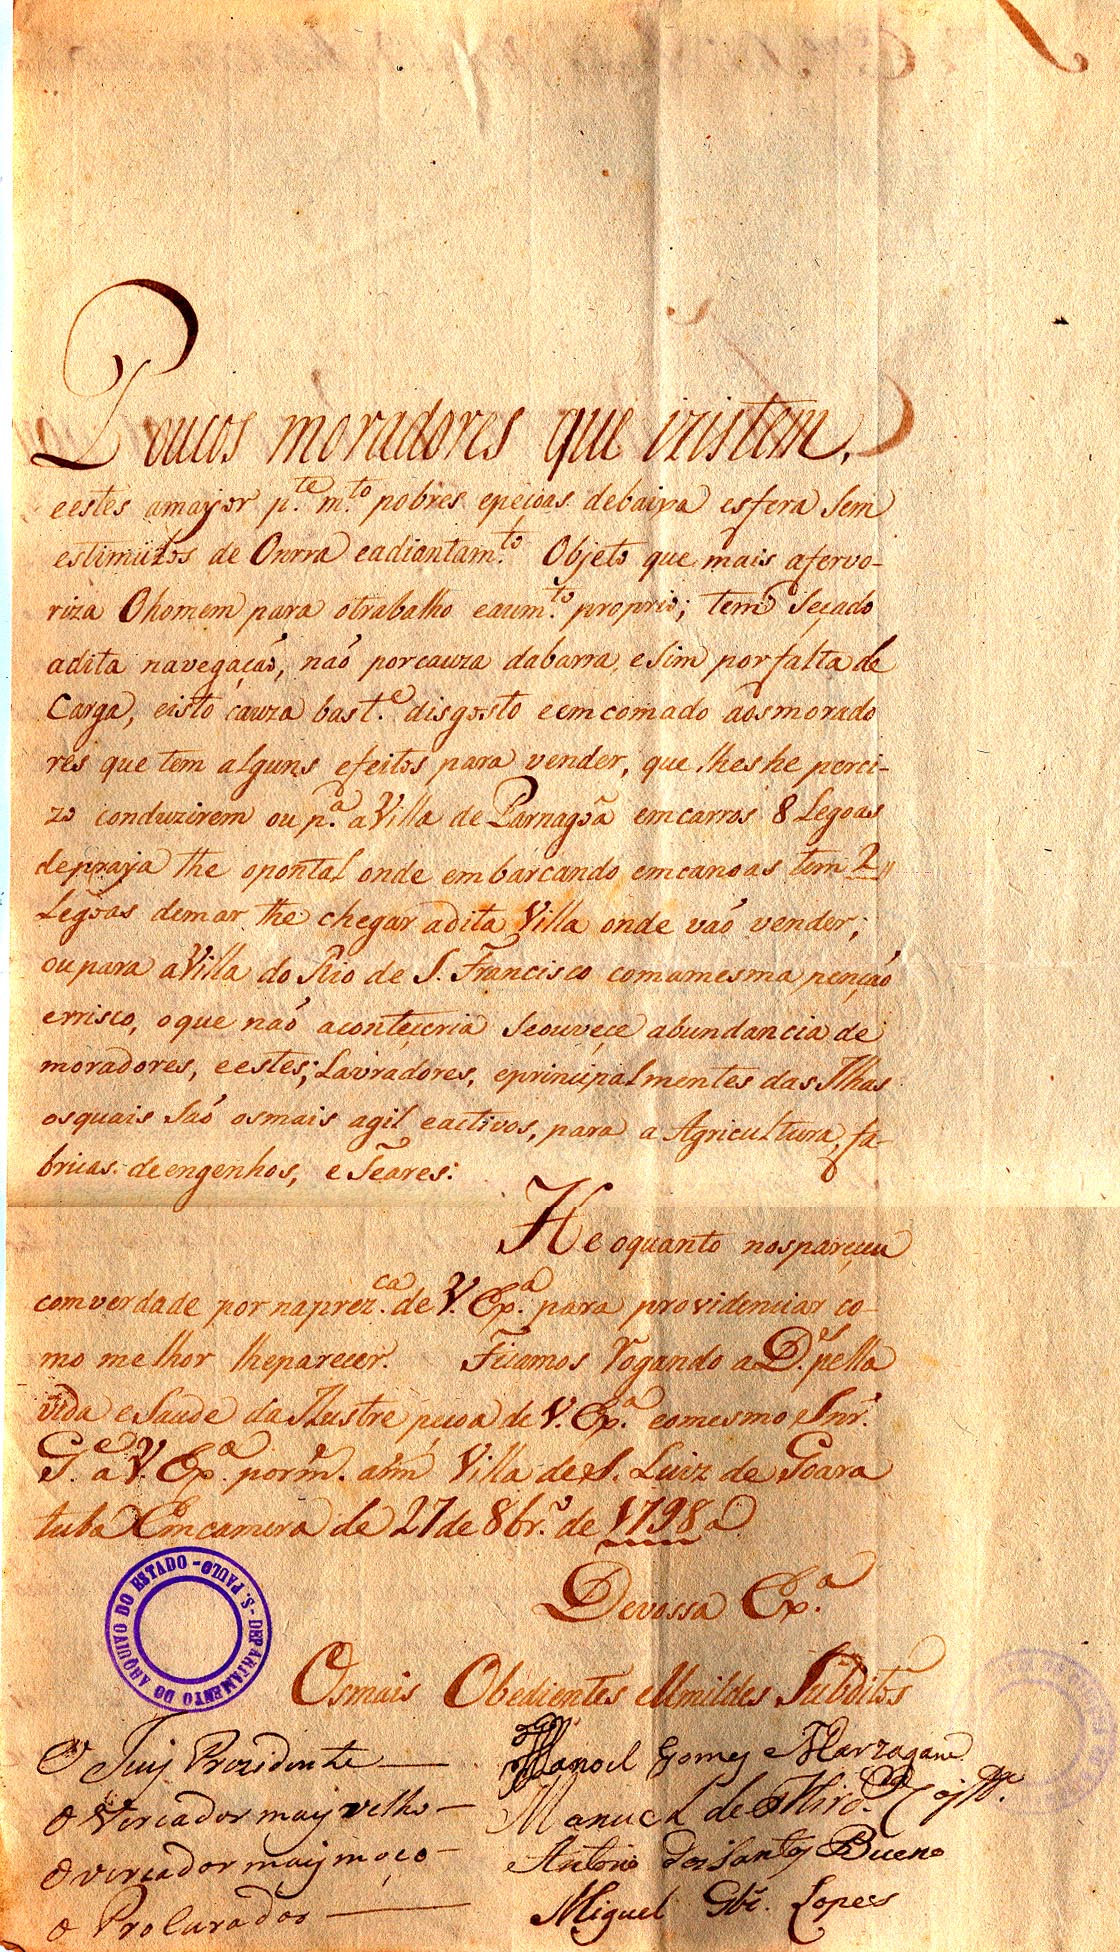 Poucos moradores que izistem,
eestes amayor p.te m.to pobres epeçoas debaixa esfera Sem
estimullos de Onrra eadiantam.to Objeto que mais afervo-
riza Ohomem para otrabalho eaum.to proprio; tem Seçado
adita navegaçaõ, naõ porcauza dabarra eSim porfalta de
Carga, eisto cauza bast.e disgosto eemcomado aõsmorado
res que tem alguns efeitos para vender, que lheshe perci-
zo conduzirem ou p.a aVilla de Parnagoã emcarros 8 Legoas
depraya the opontal onde embarcando emcanoas tem 2
Legoas demar the chegar adita Villa onde vaõ vender;
oupara aVilla do Rio de S. Francisco comamesma pençaõ
errisco, oque naõ aconteçeria Seouveçe abundancia de
moradores, eestes; Lavradores, eprincipalmentes das Ilhas
osquais Saõ osmais agil eactivos, para a Agricultura, fa-
bricas deengenhos, e Teares:
He oquanto nospareçeu
comverdade por naprez.ca de V. Ex.a para providenciar co-
mo melhor lheparecer. Ficamos Rogando a D.s pella
vida eSaude da Ilustre pecoa de V. Ex.a eomesmo Snr.
G.e a V. Ex.a porm. ann Villa de S. Luiz de Goara
tuba Emcamera de 27 de 8br.o de 1798 a
Devossa Ex.a
Osmais Obedientes eUmildes Subditos
DEPARTAMENTO DO ARQUIVO DO ESTADO - S. PAULO -
O Juiz Prezidente — Manoel Gomes Marzagaõ
O Vereador mays velho — Manuel de
O vereador mays moço — Antonio dos Santos Bueno
O Procurador — Miguel Glz. Lopes